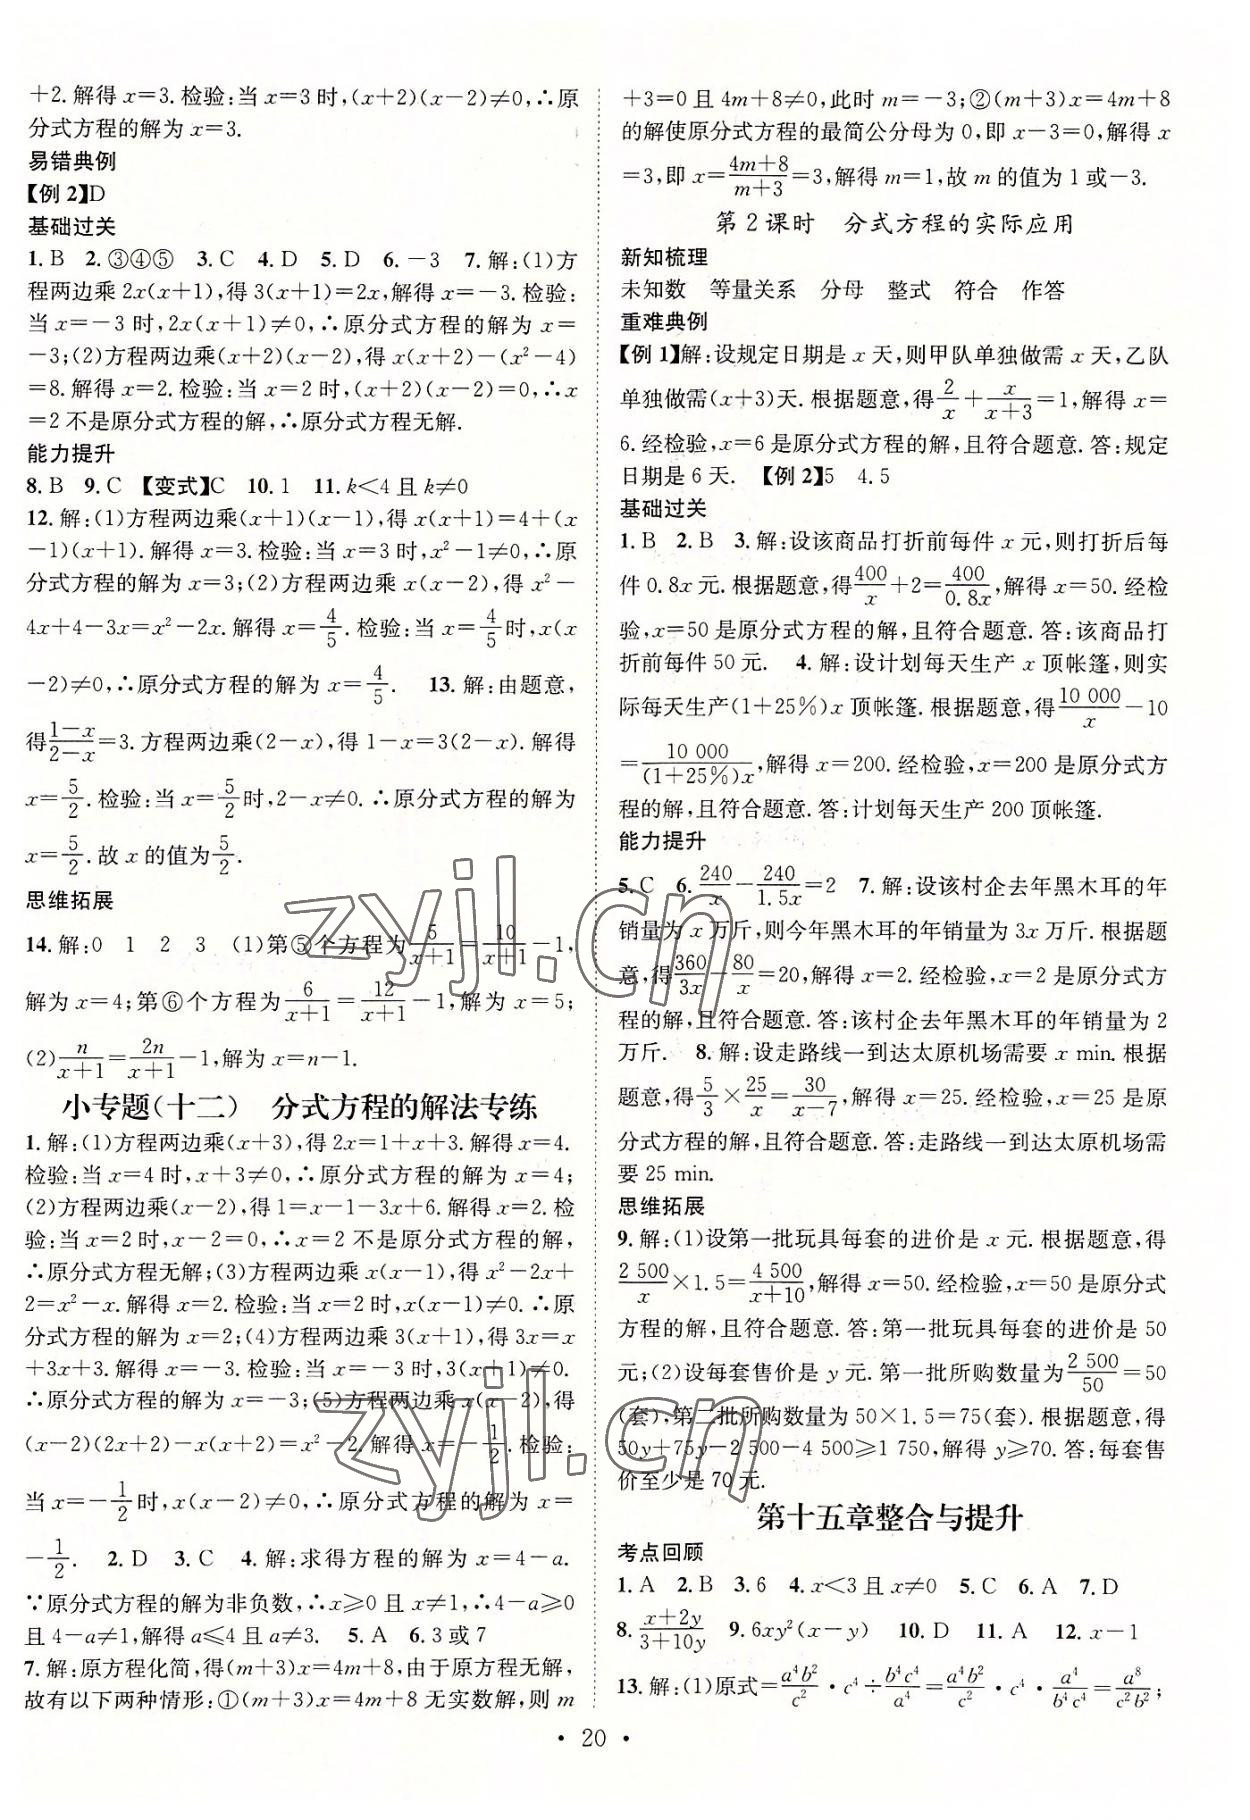 +2. 解得 x=3. 检验:当 x=3 时,(x+2)(x-2)≠0,∴原
分式方程的解为 x=3.
易错典例
【例 2】D
基础过关
1. B 2. ③④⑤ 3. C 4. D 5. D 6. -3 7. 解:(1)方
程两边乘 2x(x+1),得 3(x+1)=2x,解得 x=-3. 检验:
当 x=-3 时,2x(x+1)≠0,∴原分式方程的解为 x=
-3;(2)方程两边乘(x+2)(x-2),得 x(x+2)-(x²-4)
=8. 解得 x=2. 检验:当 x=2 时,(x+2)(x-2)=0,∴x
=2 不是原分式方程的解,∴原分式方程无解.
能力提升
8. B 9. C 【变式】C 10. 1 11. k<4 且 k≠0
12. 解:(1)方程两边乘(x+1)(x-1),得 x(x+1)=4+(x
-1)(x+1). 解得 x=3. 检验:当 x=3 时,x²-1≠0,∴原
分式方程的解为 x=3;(2)方程两边乘 x(x-2),得 x²-
4x+4-3x=x²-2x. 解得 x=4/5. 检验:当 x=4/5时,x(x
-2)≠0,∴原分式方程的解为 x=4/5. 13. 解:由题意,
得(1-x)/(2-x)=3. 方程两边乘(2-x),得 1-x=3(2-x). 解得
x=5/2. 检验:当 x=5/2时,2-x≠0. ∴原分式方程的解为
x=5/2. 故 x 的值为5/2.
思维拓展
14. 解:0 1 2 3 (1)第⑤个方程为5/(x+1)=10/(x+1)-1,
解为 x=4;第⑥个方程为6/(x+1)=12/(x+1)-1,解为 x=5;
(2)n/(x+1)=2n/(x+1)-1,解为 x=n-1.
小专题(十二) 分式方程的解法专练
1. 解:(1)方程两边乘(x+3),得 2x=1+x+3. 解得 x=4.
检验:当 x=4 时,x+3≠0,∴原分式方程的解为 x=4;
(2)方程两边乘(x-2),得 1=x-1-3x+6. 解得 x=2. 检
验:当 x=2时,x-2=0,∴x=2 不是原分式方程的解,
∴原分式方程无解;(3)方程两边乘 x(x-1),得 x²-2x+
2=x²-x. 解得 x=2. 检验:当 x=2 时,x(x-1)≠0. ∴原
分式方程的解为 x=2;(4)方程两边乘 3(x+1),得 3x=x
+3x+3. 解得 x=-3. 检验:当 x=-3 时,3(x+1)≠0.
∴原分式方程的解为 x=-3;(5)方程两边乘 x(x-2),得
(x-2)(2x+2)-x(x+2)=x²-2. 解得 x=-1/2. 检验:
当 x=-1/2时,x(x-2)≠0,∴原分式方程的解为 x=
-1/2. 2. D 3. C 4. 解:求得方程的解为 x=4-a.
∵原分式方程的解为非负数,∴x≥0 且 x≠1,∴4-a≥0
且 4-a≠1,解得 a≤4 且 a≠3. 5. A 6. 3 或 7
7. 解:原方程化简,得(m+3)x=4m+8,由于原方程无解,
故有以下两种情形:①(m+3)x=4m+8 无实数解,则 m
+3=0 且 4m+8≠0,此时 m=-3;②(m+3)x=4m+8
的解使原分式方程的最简公分母为 0,即 x-3=0,解得 x
=3,即 x=(4m+8)/(m+3)=3,解得 m=1,故 m 的值为 1 或-3.
第 2 课时 分式方程的实际应用
新知梳理
未知数 等量关系 分母 整式 符合 作答
重难典例
【例 1】解:设规定日期是 x 天,则甲队单独做需 x 天,乙队
单独做需(x+3)天. 根据题意,得2/x+x/(x+3)=1,解得 x=
6. 经检验,x=6 是原分式方程的解,且符合题意. 答:规定
日期是 6 天. 【例 2】5 4. 5
基础过关
1. B 2. B 3. 解:设该商品打折前每件 x 元,则打折后每
件 0. 8x 元. 根据题意,得400/x+2=400/0.8x,解得 x=50. 经检
验,x=50 是原分式方程的解,且符合题意. 答:该商品打
折前每件 50 元. 4. 解:设计划每天生产 x 顶帐篷,则实
际每天生产(1+25%)x 顶帐篷. 根据题意,得10 000/x-10
=10 000/(1+25%)x,解得 x=200. 经检验,x=200 是原分式方
程的解,且符合题意. 答:计划每天生产 200 顶帐篷.
能力提升
5. C 6. 240/x-240/1.5x=2 7. 解:设该村企去年黑木耳的年
销量为 x 万斤,则今年黑木耳的年销量为 3x 万斤. 根据题
意,得360/3x-80/x=20,解得 x=2. 经检验,x=2 是原分式方
程的解,且符合题意. 答:该村企去年黑木耳的年销量为 2
万斤. 8. 解:设走路线一到达太原机场需要 x min. 根据
题意,得5/3×25/x=30/(x-7),解得 x=25. 经检验,x=25 是原
分式方程的解,且符合题意. 答:走路线一到达太原机场需
要 25 min.
思维拓展
9. 解:(1)设第一批玩具每套的进价是 x 元. 根据题意,得
2 500/x×1. 5=4 500/(x+10),解得 x=50. 经检验,x=50 是原分式
方程的解,且符合题意. 答:第一批玩具每套的进价是 50
元;(2)设每套售价是 y 元. 第一批所购数量为2 500/50=50
(套),第二批所购数量为 50×1. 5=75(套). 根据题意,得
50y+75y-2 500-4 500≥1 750,解得 y≥70. 答:每套售
价至少是 70 元.
第十五章整合与提升
考点回顾
1. A 2. B 3. 6 4. x<3 且 x≠0 5. C 6. A 7. D
8. (x+2y)/(3+10y) 9. 6xy²(x-y) 10. D 11. A 12. x-1
13. 解:(1)原式=a⁴b²/c²·c⁴÷b⁴c⁴/a⁴=a⁴b²/c²·c⁴·a⁴/b⁴c⁴=a⁸/c²b²;
• 20 •
zyjl.cn
zyjl.cn